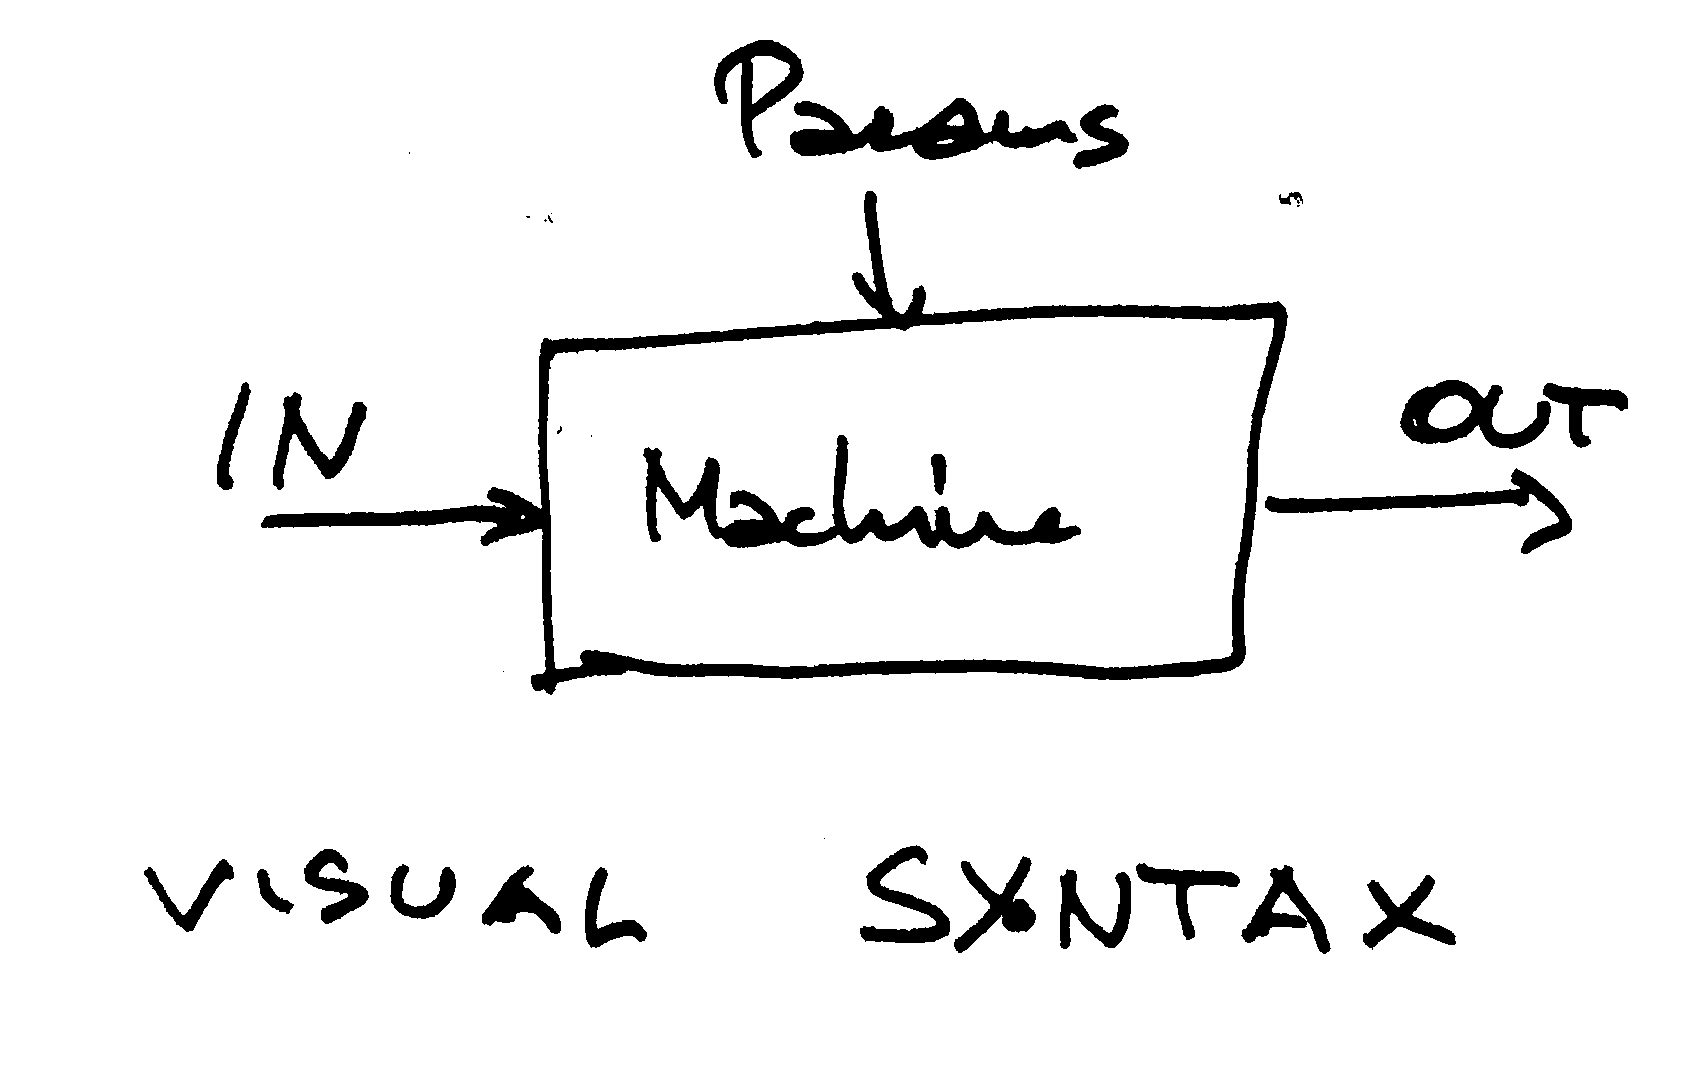 Params
IN
OUT
Machine
VISUAL SYNTAX